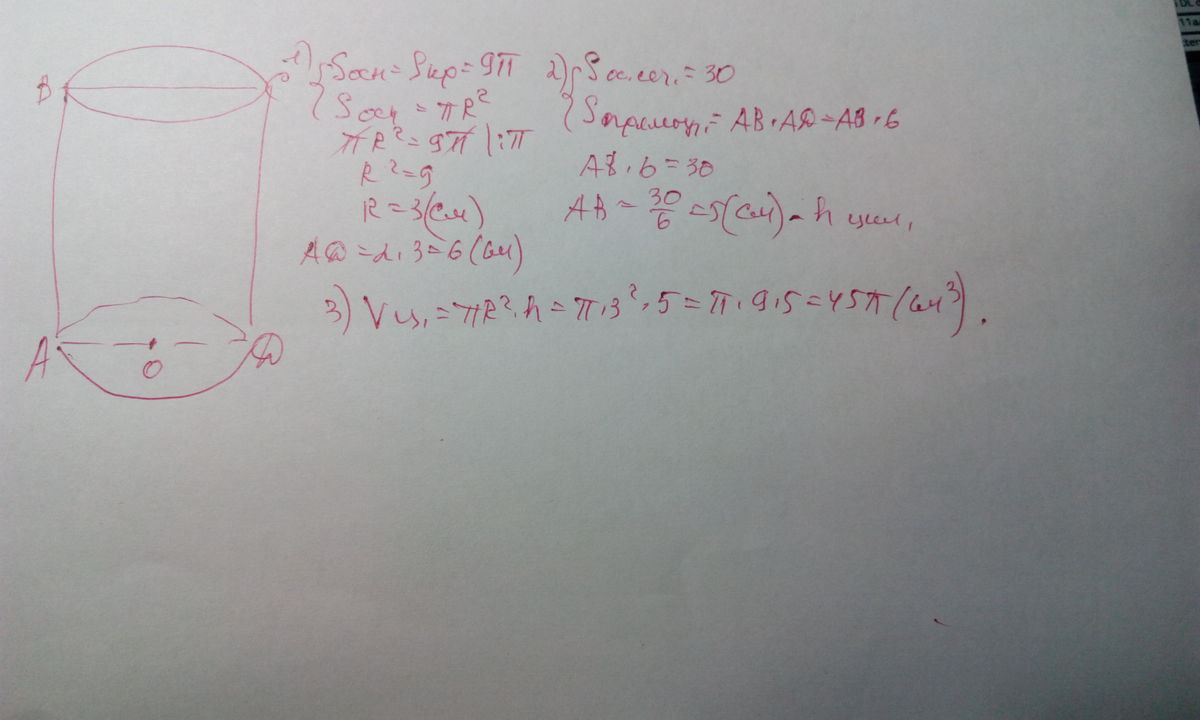 B
C
1) { Sосн = Sкр = 9π
Sосн = πR²
πR² = 9π |:π
R² = 9
R = 3 (см)
AD = 2·3 = 6 (см)
2) { Sос.сеч. = 30
Sпрямоуг. = AB · AD = AB · 6
AB · 6 = 30
AB = 30/6 = 5 (см) - h цил.
3) Vц. = πR²·h = π·3²·5 = π·9·5 = 45π (см³).
A
O
D